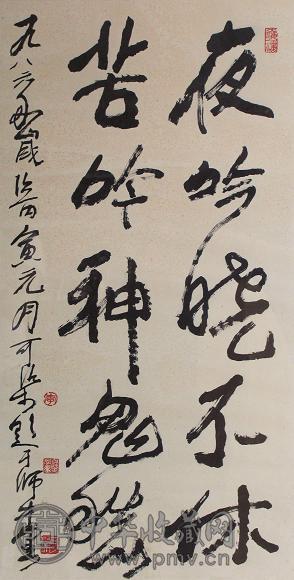 夜吟晓不休
苦吟神鬼愁
九八六年歲次丙寅元月可染题于师牛堂
中华收藏网
www.pmv.cn